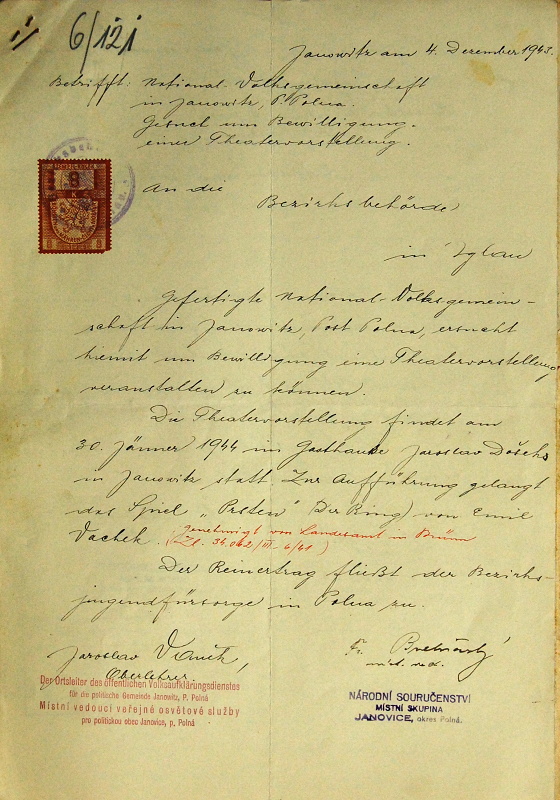 6/121
Janowitz am 4. Dezember 1943.
Betrifft: National-Volksgemeinschaft
in Janowitz, P. Polna.
Gesuch um Bewilligung
einer Theatervorstellung.
8
K
8 8
An die
Bezirksbehörde
in Iglau
Gefertigte National-Volksgemein-
schaft in Janowitz, Post Polna, ersucht
hiemit um Bewilligung eine Theatervorstellung
veranstalten zu können.
Die Theatervorstellung findet am
30. Jänner 1944 im Gasthause Jaroslav Došeks
in Janowitz statt. Zur Aufführung gelangt
das Spiel „Prsten" (Der Ring) von Emil
Vachek. (genehmigt von Landesamt in Brünn
Zl. 34.062/III-6/41)
Der Reinertrag fließt der Bezirks-
jugendfürsorge in Polna zu.
Jaroslav
Oberlehrer
Der Ortsleiter des öffentlichen Volksaufklärungsdienstes
für die politische Gemeinde Janowitz, P. Polná
Místní vedoucí veřejné osvětové služby
pro politickou obec Janovice, p. Polná
Fr.
NÁRODNÍ SOURUČENSTVÍ
MÍSTNÍ SKUPINA
JANOVICE, okres Polná.